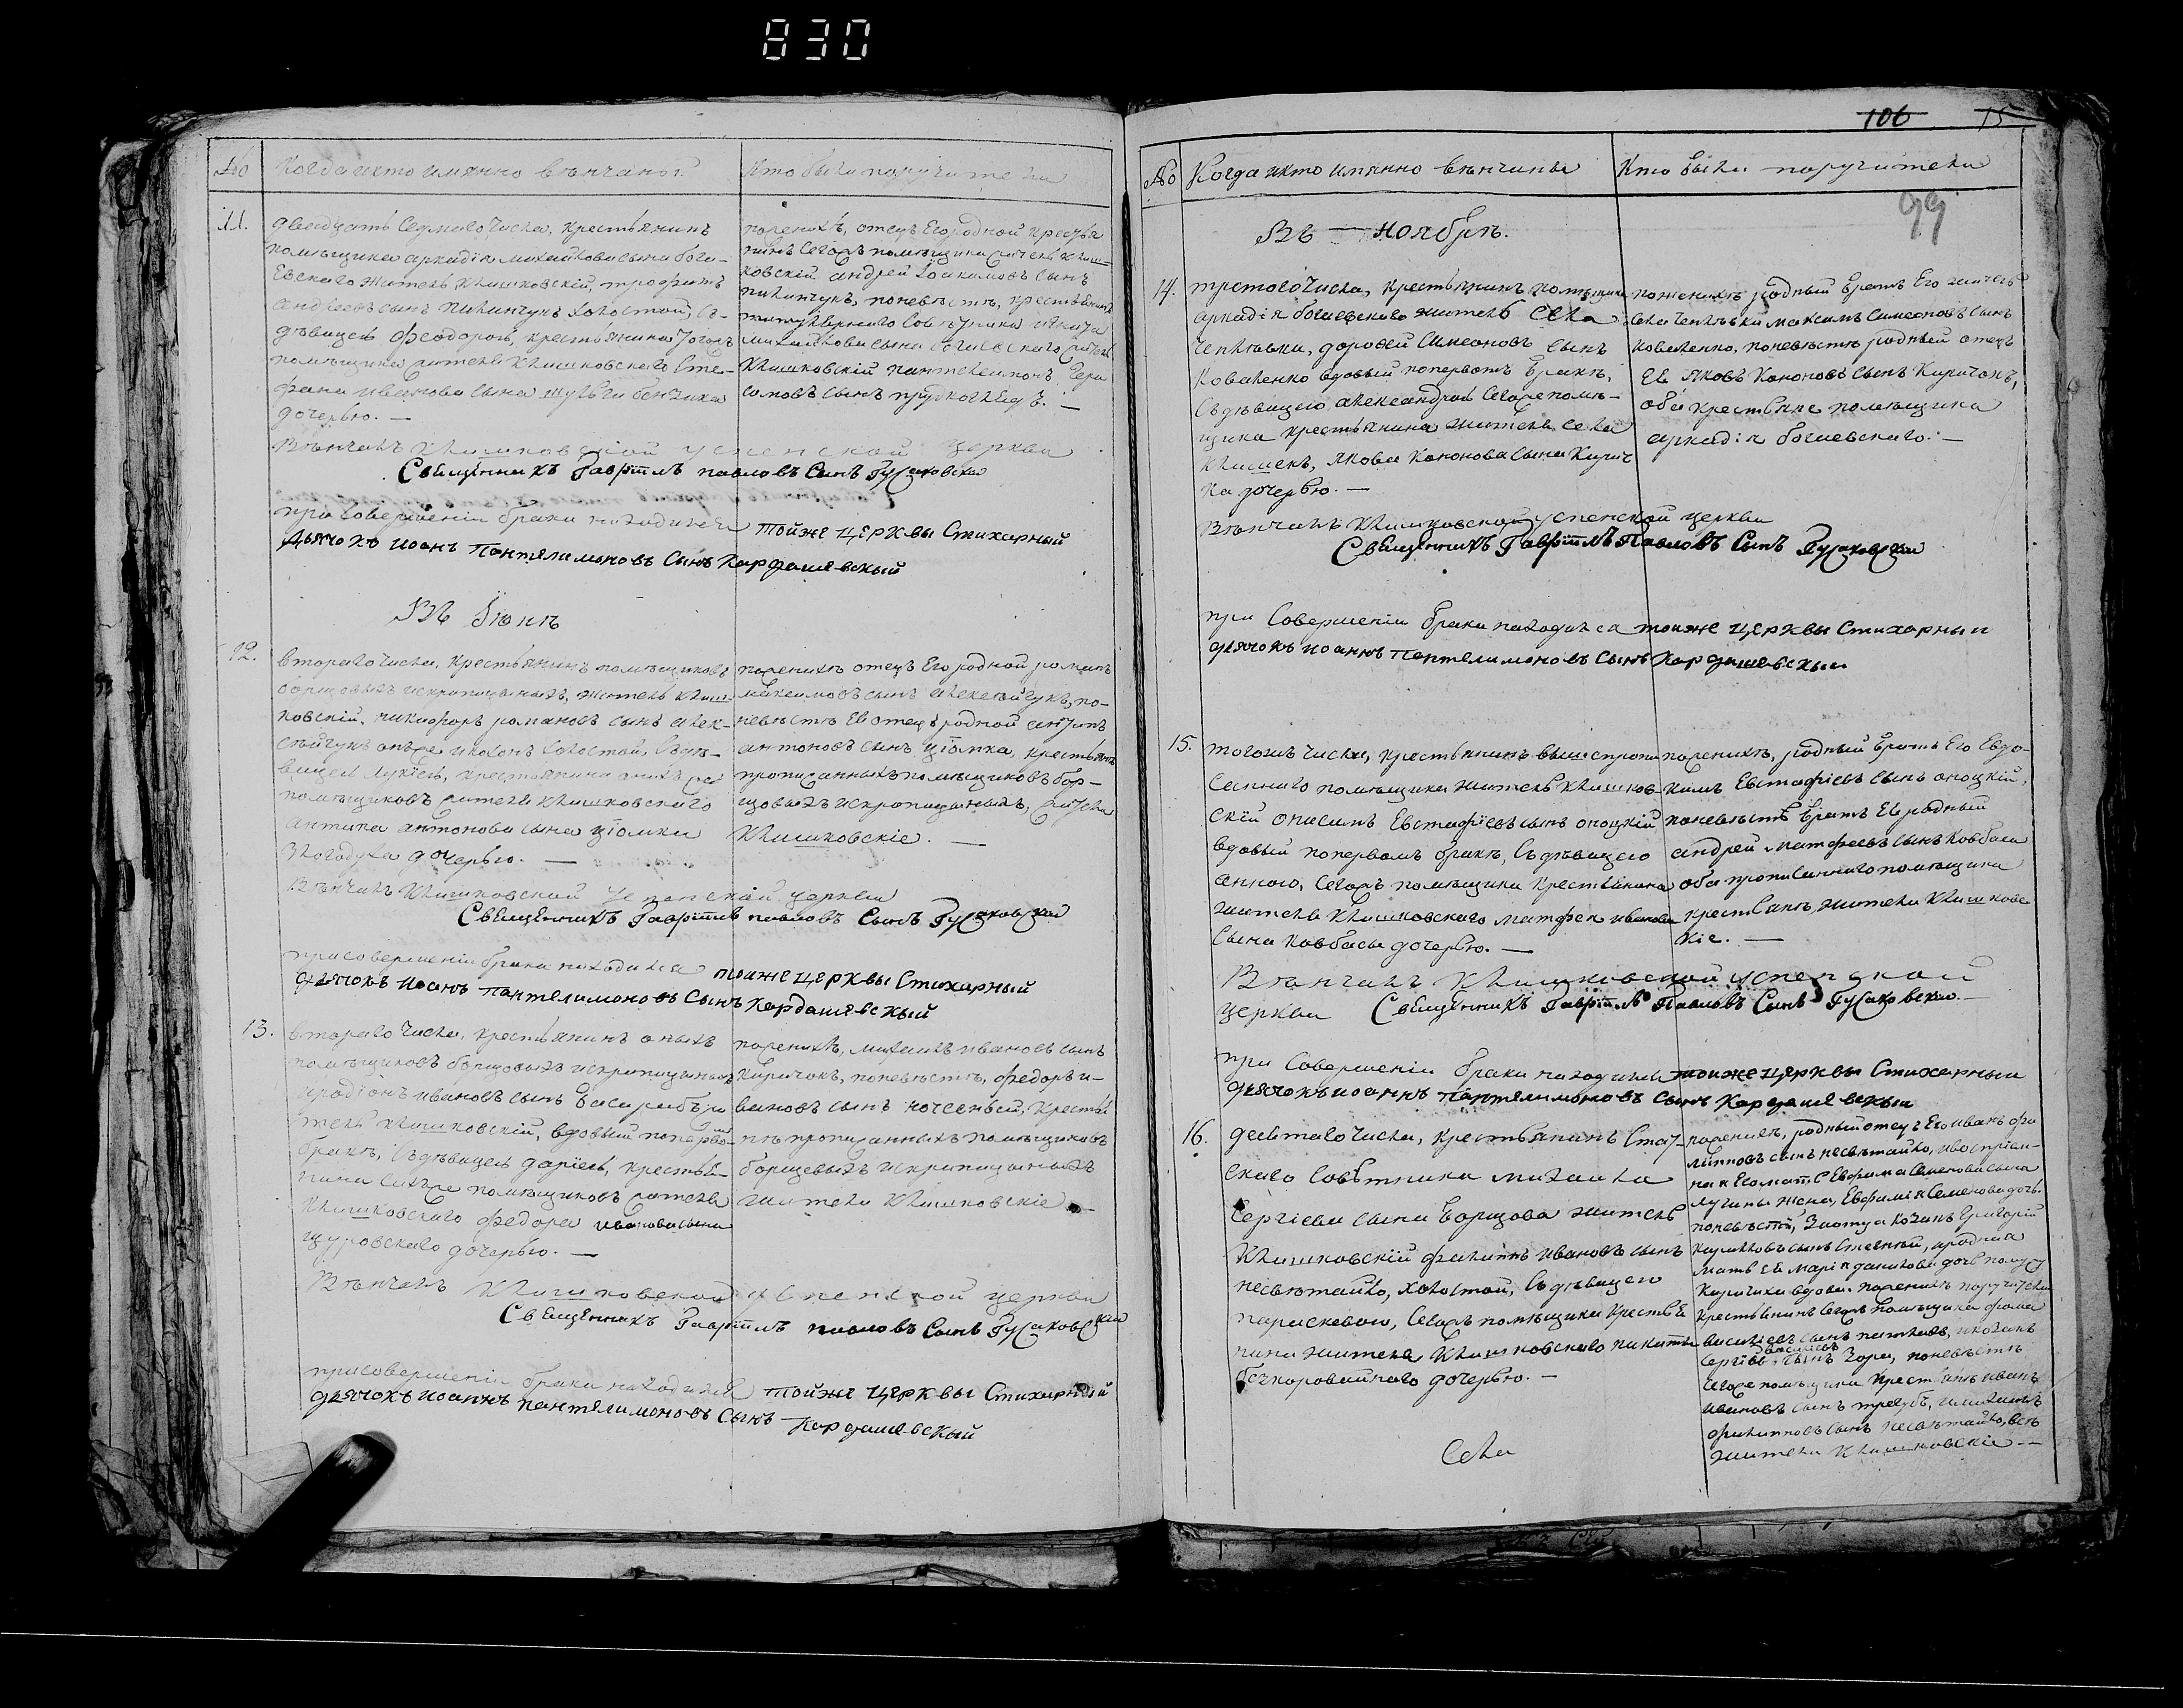 830
№ Когда икто имянно венчаныі Кто были поручители
11. двадцать седмаго числа, крестьянинъ
помѣщика аркадія михайлова сына боги-
евскаго житель Клишковскій, трофимъ
андреевъ сынъ пилипчукъ холостой, съ
дѣвицею феодорою, крестьянина тогожъ
помѣщика жителя Клишковскаго Сте-
фана иванова сына
дочерью. —
поженихѣ, отецъ Его родной крестья
нинъ сегожъ помѣщика житель Клиш-
ковскій андрей іоакимовъ сынъ
пилипчукъ, поневѣстѣ, крестьянинъ
титулярнаго совѣтника
михайлова сына богиевскаго житель
Клишковскій пантелеимонъ гера
симовъ сынъ
Вѣнчалъ Клишковской успенской церкви
Священникъ Гавріилъ павловъ Сынъ Гусаковскій
при совершеніи брака находился тойже церквы Стихарный
дьячокъ иоанъ Пантелимоновъ Сынъ Кардашевскый
Въ іюнѣ
12. втораго числа, крестьянинъ помѣщиковъ
борщовыхъ искропицыныхъ, житель клиш-
ковскій, никифоръ романовъ сынъ алек-
сѣйчукъ холостой, съдѣ-
вицею лукіею, крестьянина онихъ же
помѣщиковъ жителя клишковскаго
антипа антонова сына цюпки
дочерью. —
поженихѣ отецъ Его родной романъ
максимовъ сынъ алексѣйчукъ, по-
невѣстѣ Ея отецъ родной антипъ
антоновъ сынъ цюпка, крестьяне
прописанныхъ помѣщиковъ бор-
щовыхъ искропицыныхъ, жители
Клишковскіе. —
Вѣнчалъ Клишковской Успенской церкви
Священникъ Гавріилъ павловъ Сынъ Гусаковскій
присовершеніи брака находился тоиже церквы Стихарный
дьячокъ иоанъ пантелимоновъ Сынъ Кардашевскый
13. втораго числа, крестьянинъ оныхъ
помѣщиковъ борщовыхъ искропицыныхъ
иродіонъ ивановъ сынъ жи
тель клишковскій, вдовый поперво-
бракѣ, съдѣвицею даріею, крестья-
нина сихъже помѣщиковъ жителя
Клишковскаго федора иванова сына
щуровскаго дочерью. —
поженихѣ, михаилъ ивановъ сынъ
Киричокъ, поневѣстѣ, федоръ и-
вановъ сынъ крестья
не прописанныхъ помѣщиковъ
борщевыхъ искропицыныхъ
жители Клишковскіе —
Вѣнчалъ Клишковской Успенской церкви
Священникъ Гавріилъ павловъ Сынъ Гусаковскій
присовершеніи брака находился тойже церквы Стихарный
дьячокъ иоаннъ пантелимоновъ Сынъ
Кардашевскый
106 15
№ Когда икто имянно венчаны Кто были поручители
99
Въ — ноябрѣ.
14. третогочисла, крестьянинъ помѣщика
аркадія богиевскаго житель села
Чепліевки, дорофей Симеоновъ сынъ
Коваленко вдовый попервомъ бракѣ,
съдѣвицею александрою Сегоже помѣ-
щика крестьянина жителя села
Клишекъ, якова Кононова сына Кирич
ка дочерью. —
поженихѣ родный братъ Его житель
села Чепліевки максимъ симеоновъ сынъ
Коваленко, поневѣстѣ родный отецъ
Ея Яковъ Кононовъ сынъ Киричокъ,
оба крестьяне помѣщика
аркадія богиевскаго. —
Вѣнчалъ клишковской успенской церкви
Священникъ Гавріилъ Павловъ Сынъ Гусаковскій
при Совершеніи брака находился тоиже церквы Стихарный
дьячокъ иоаннъ пантелимоновъ сынъ Кардашевскый
15. тогожъ числа, крестьянинъ вышепропи
саннаго помѣщика житель Клишков-
скій онисимъ Евстафіевъ сынъ оноцкій
вдовый попервомъ бракѣ, съдѣвицею
анною, Сегожъ помѣщика крестьянина
жителя Клишковскаго матфея иванова
сына ковбасы дочерью. —
поженихѣ, родный братъ Его Евдо-
кимъ Евстафіевъ сынъ оноцкій,
поневѣстѣ братъ Ея родный
андрей Матфеевъ сынъ Ковбаса
оба прописаннаго помѣщика
крестьяне, жители Клишковс
кіе. —
Вѣнчалъ Клишковской успенской
церкви Священникъ Гавріилъ Павловъ Сынъ Гусаковскій —
при Совершеніи брака находился тоиже церквы Стихарный
дьячокъ иоаннъ пантелимоновъ сынъ Кардашевскый
16. девятаго числа, крестьянинъ Стат-
скаго Совѣтника михаила
Сергіева сына Борщова житель
Клишковскій филиппъ ивановъ сынъ
несвѣтайло, холостой, съдѣвицею
параскевою, Сегожъ помѣщика крестья
нина жителя Клишковскаго никиты
безкоровайнаго дочерью. —
поженихѣ, родный отецъ Его иванъ фи
липповъ сынъ несвѣтайло, ивоспріем-
ная Его мать Евфима Семенова сына
лучины жена, Евфимія Семенова дочь.
поневѣстѣ, козакъ Григорій
Кириловъ сынъ иродная
мать Ея марія данилова дочь
вдова. поженихѣ поручители
крестьянинъ Сегожъ помѣщика фома
васильевъ сынъ икозакъ
Сергіевъ васильевъ сынъ Зора, поневѣстѣ
Сегоже помѣщика крестьяне иванъ
ивановъ сынъ трегубъ, имихаилъ
филипповъ сынъ несвѣтайло, всѣ
жители Клишковскіе —
Села